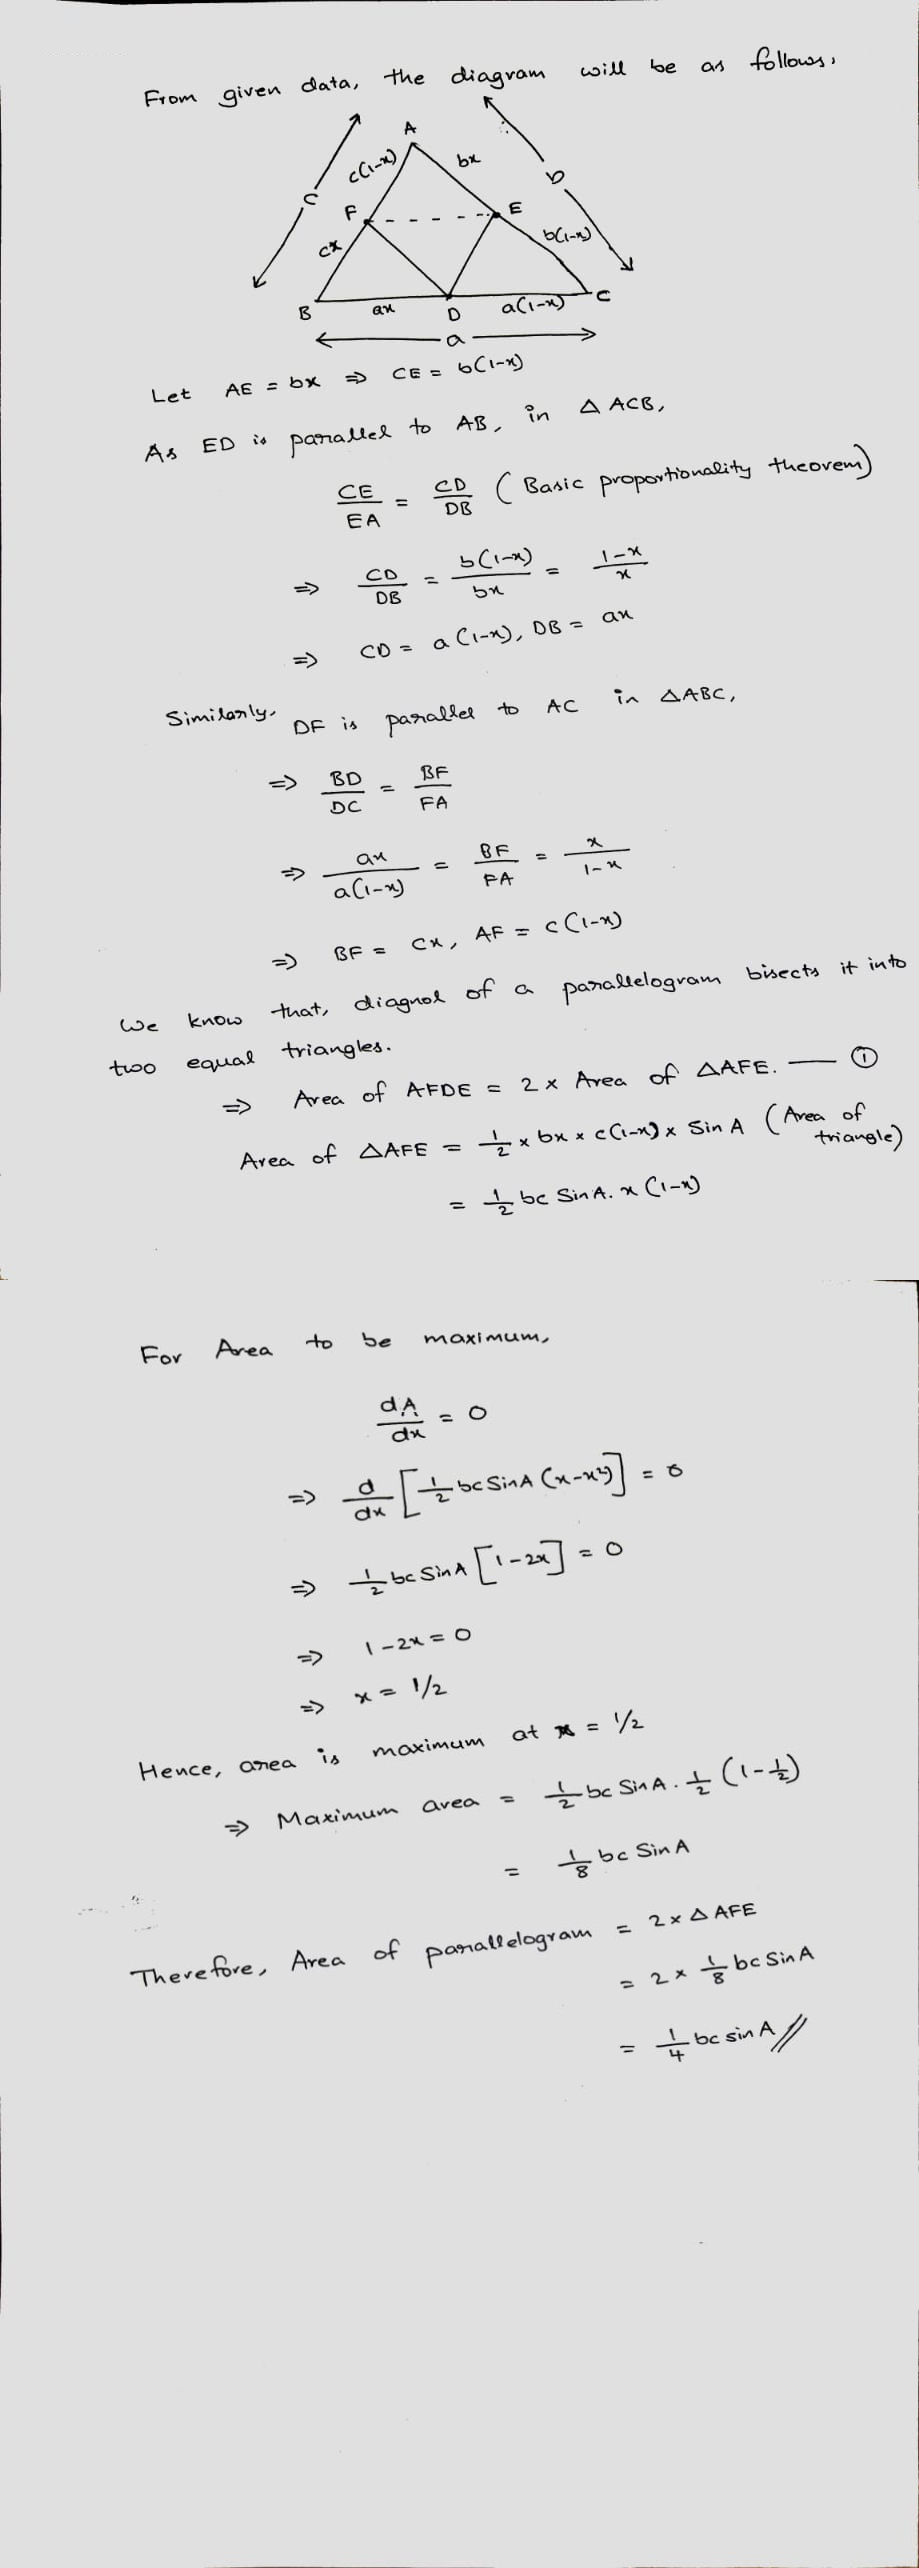 From given data, the diagram will be as follows,
A
c(1-x)
bx
c
b
F
E
cx
b(1-x)
B
ax
D
a(1-x)
C
a
Let AE = bx ⇒ CE = b(1-x)
As ED is parallel to AB, in △ ACB,
CE/EA = CD/DB (Basic proportionality theorem)
⇒ CD/DB = b(1-x)/bx = 1-x/x
⇒ CD = a(1-x), DB = ax
Similarly, DF is parallel to AC in △ABC,
⇒ BD/DC = BF/FA
⇒ ax/a(1-x) = BF/FA = x/1-x
⇒ BF = cx, AF = c(1-x)
We know that, diagnol of a parallelogram bisects it into
two equal triangles.
⇒ Area of AFDE = 2 x Area of △AFE. — ①
Area of △AFE = 1/2 x bx x c(1-x) x Sin A (Area of triangle)
= 1/2 bc Sin A. x (1-x)
For Area to be maximum,
dA/dx = 0
⇒ d/dx [1/2 bc Sin A (x-x²)] = 0
⇒ 1/2 bc Sin A [1-2x] = 0
⇒ 1-2x = 0
⇒ x = 1/2
Hence, area is maximum at x = 1/2
⇒ Maximum area = 1/2 bc Sin A . 1/2 (1-1/2)
= 1/8 bc Sin A
Therefore, Area of parallelogram = 2 x △ AFE
= 2 x 1/8 bc Sin A
= 1/4 bc sin A //